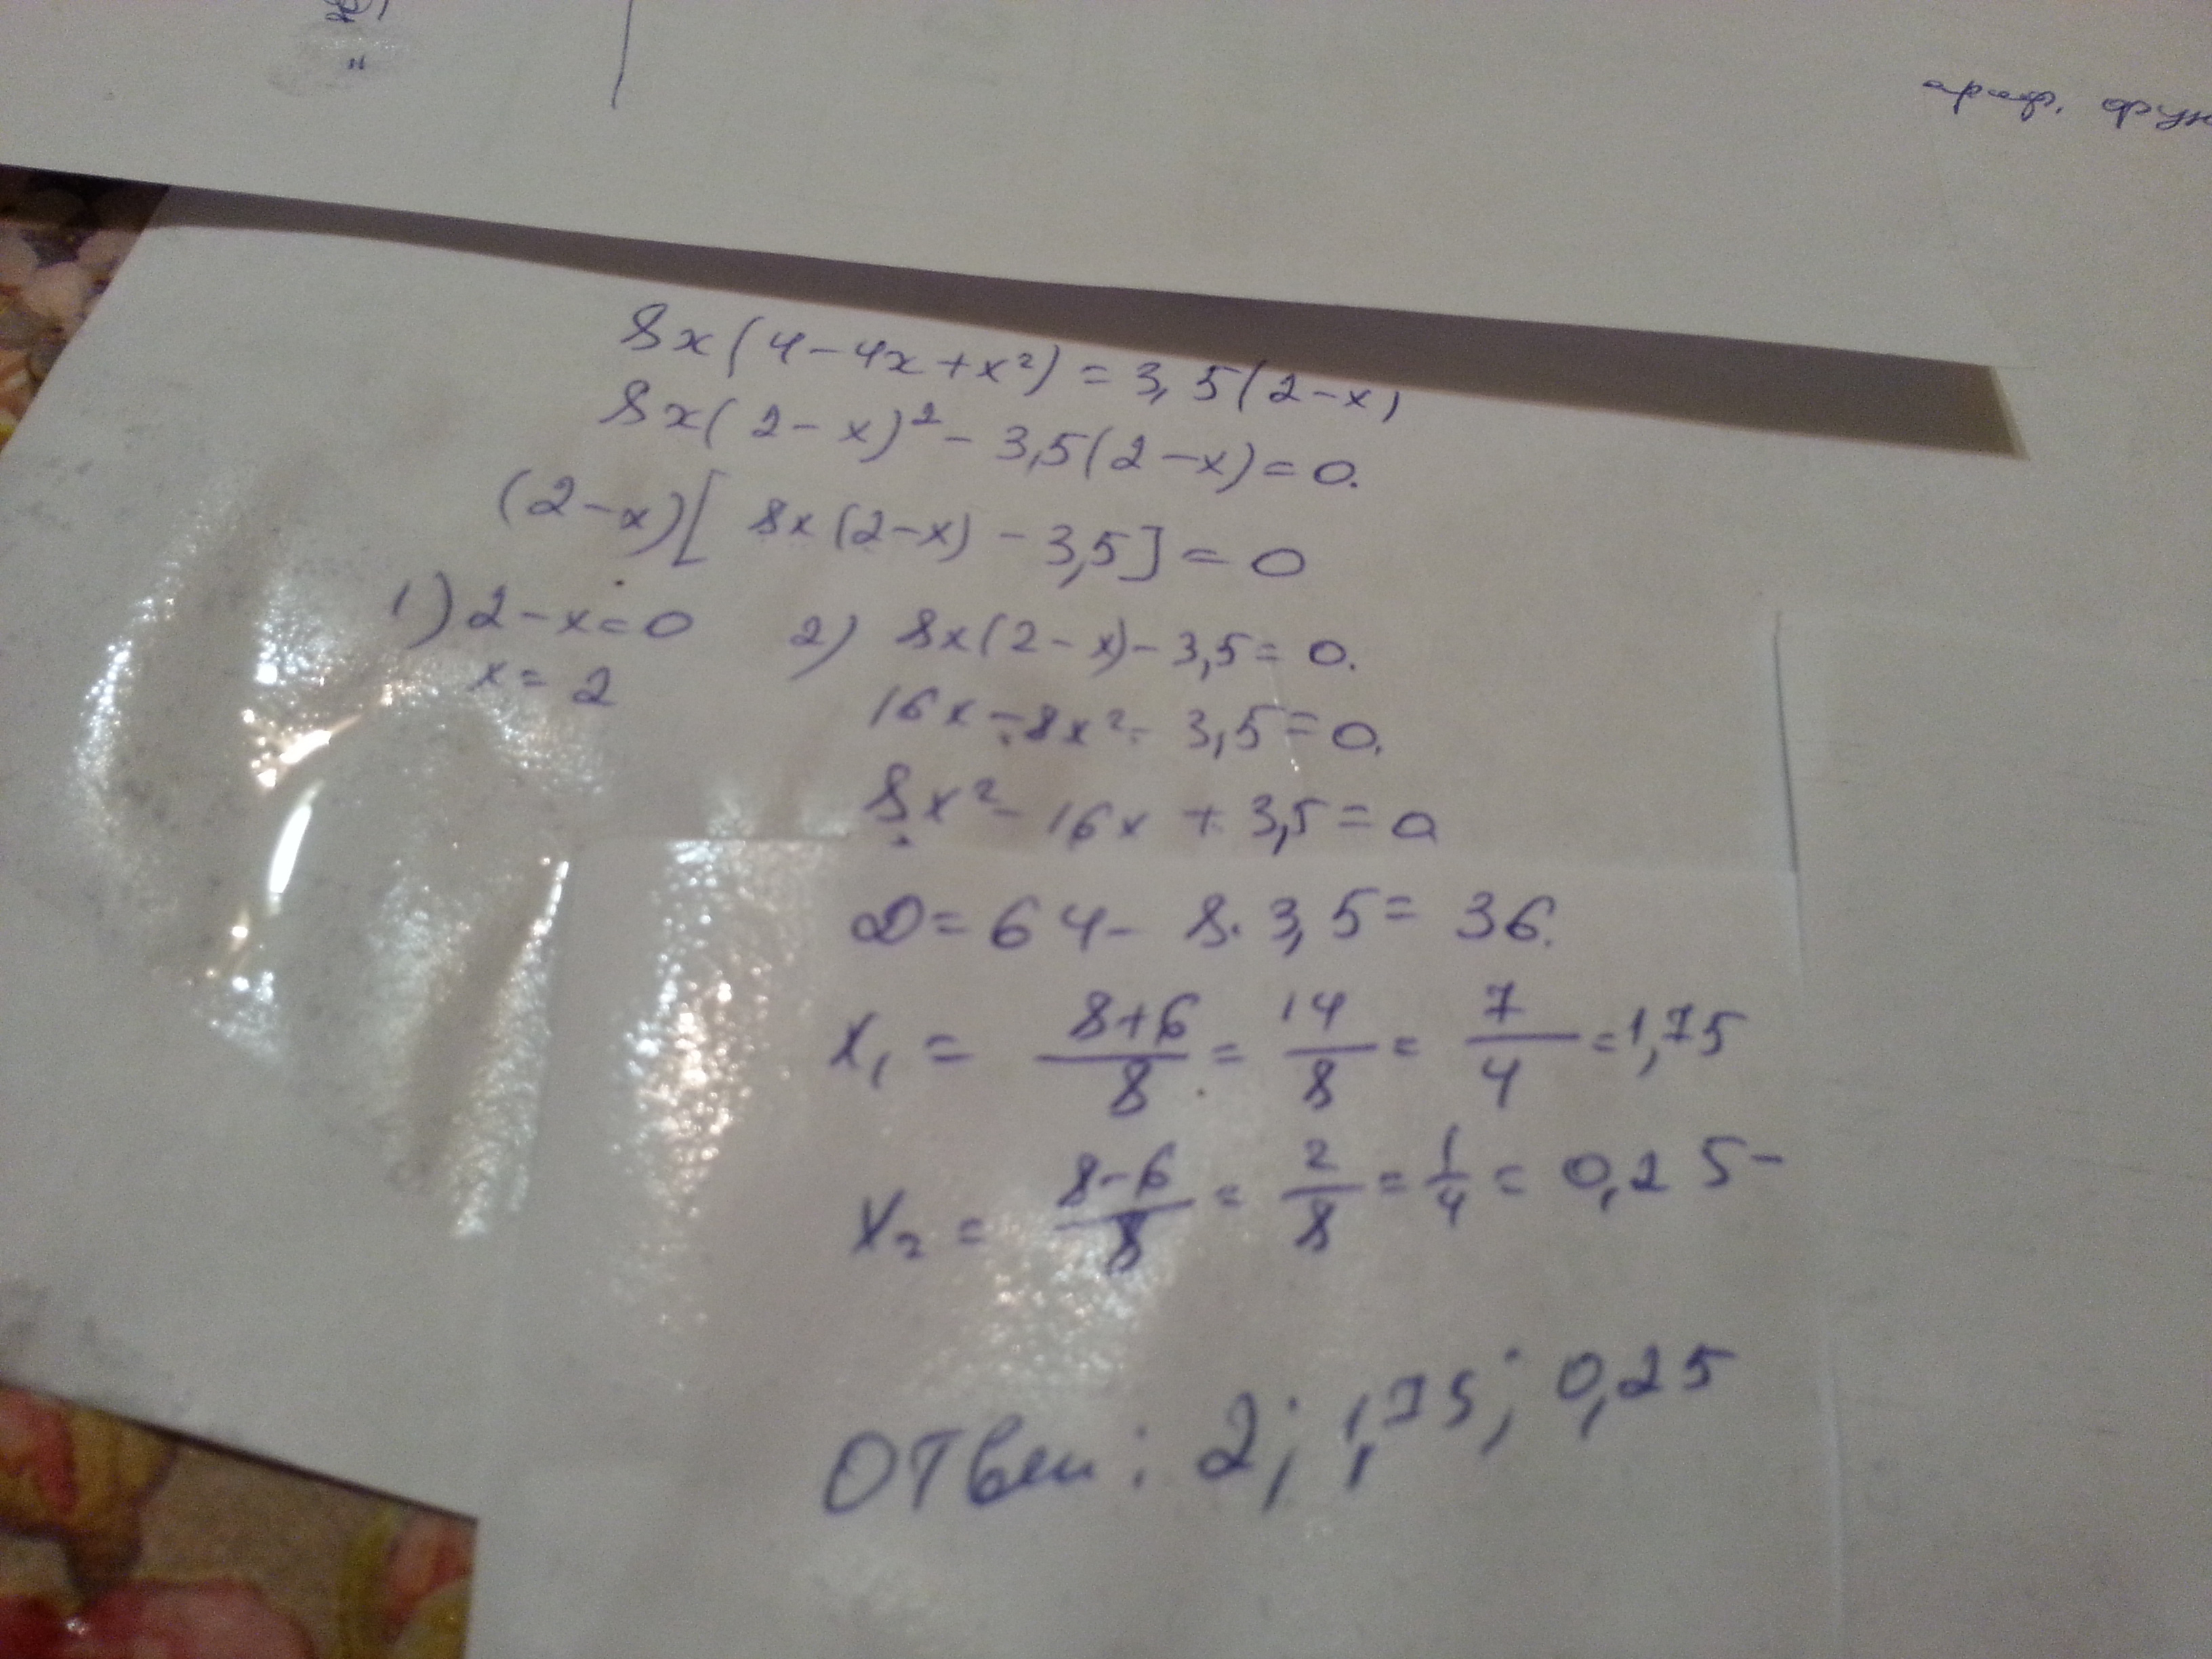 ариф. фун
8x(4-4x+x²)=3,5(2-x)
8x(2-x)²-3,5(2-x)=0.
(2-x)[8x(2-x)-3,5]=0
1) 2-x=0 2) 8x(2-x)-3,5=0.
x=2
16x-8x²-3,5=0.
8x²-16x+3,5=0
D=64-8·3,5=36.
x₁=(8+6)/8=14/8=7/4=1,75
x₂=(8-6)/8=2/8=1/4=0,25
Ответ: 2; 1,75; 0,25